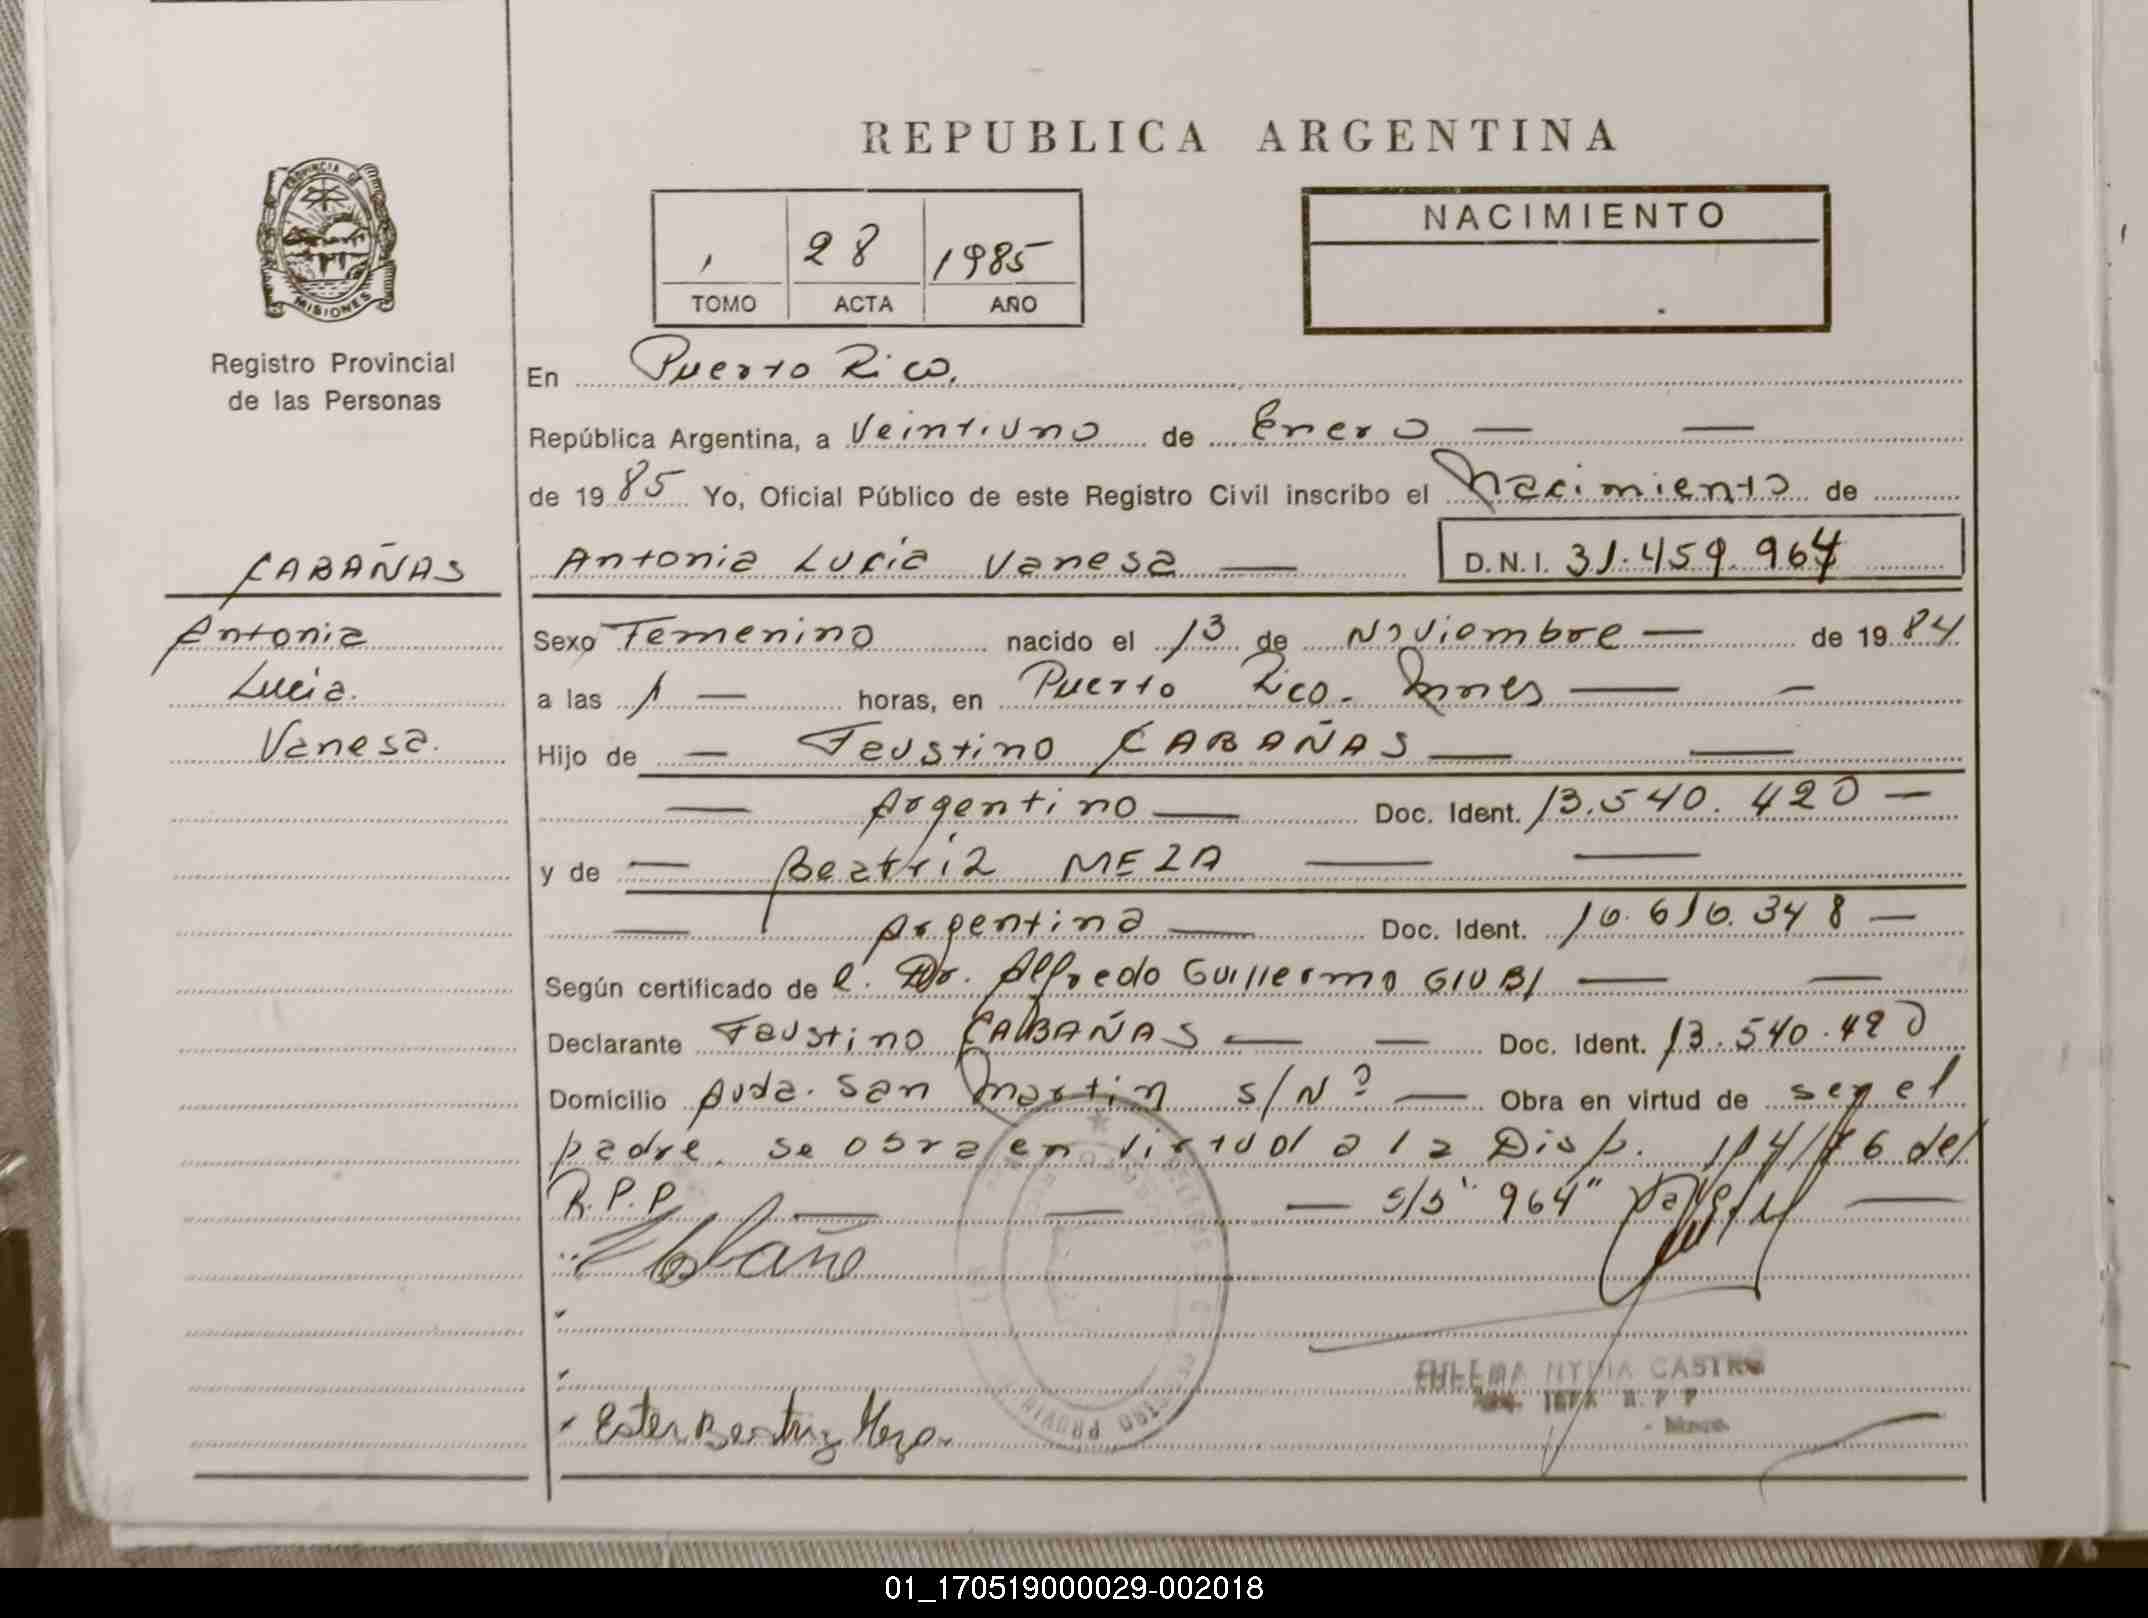 REPUBLICA ARGENTINA
PROVINCIA DE
MISIONES
Registro Provincial
de las Personas
28 1985
TOMO ACTA AÑO
NACIMIENTO
En Puerto Rico.
República Argentina, a Veintiuno de Enero
de 1985 Yo, Oficial Público de este Registro Civil inscribo el Nacimiento de
CABAÑAS
Antonia
Lucia.
Vanesa.
Antonia Lucia Vanesa D.N.I. 31.459.964
Sexo Femenino nacido el 13 de Noviembre de 1984
a las 1 horas, en Puerto Rico. Mnes
Hijo de Faustino CABAÑAS
Argentino Doc. Ident. 13.540.420
y de Beatriz MEZA
Argentina Doc. Ident. 16.616.348
Según certificado de l. Dr. Alfredo Guillermo GIUBI
Declarante Faustino CABAÑAS Doc. Ident. 13.540.420
Domicilio Avda. San Martin s/Nº Obra en virtud de ser el
padre. se obra en virtud a la Disp. 114/76 del
R.P.P. s/s "964"
Ester Beatriz Meza
NYDIA CASTRO
01_170519000029-002018